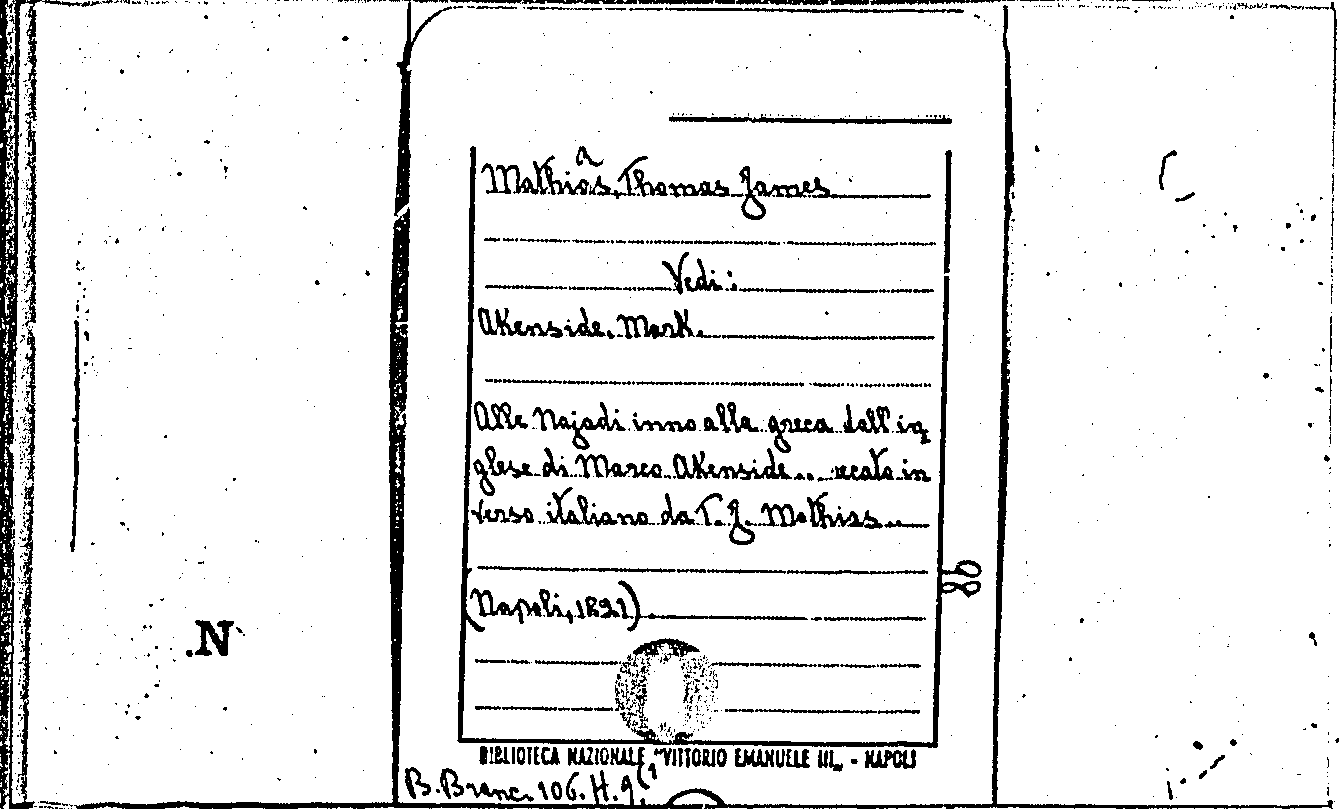 a
Mathias, Thomas James
Vedi:
Akenside, Mark.
Alle Najadi inno alla greca dall'in
glese di Marco Akenside... recato in
verso italiano da T. J. Mathias...
(Napoli, 1821).
98
.N
BIBLIOTECA NAZIONALE "VITTORIO EMANUELE III" - NAPOLI
B. Branc. 106. H. 9(1